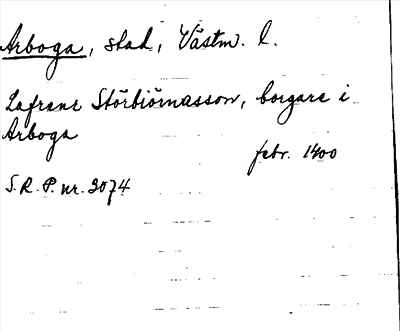 Arboga, stad, Västm. l.
Lafrenz Störbiörnasson, borgare i
Arboga
febr. 1400
S.R.P. nr. 2074